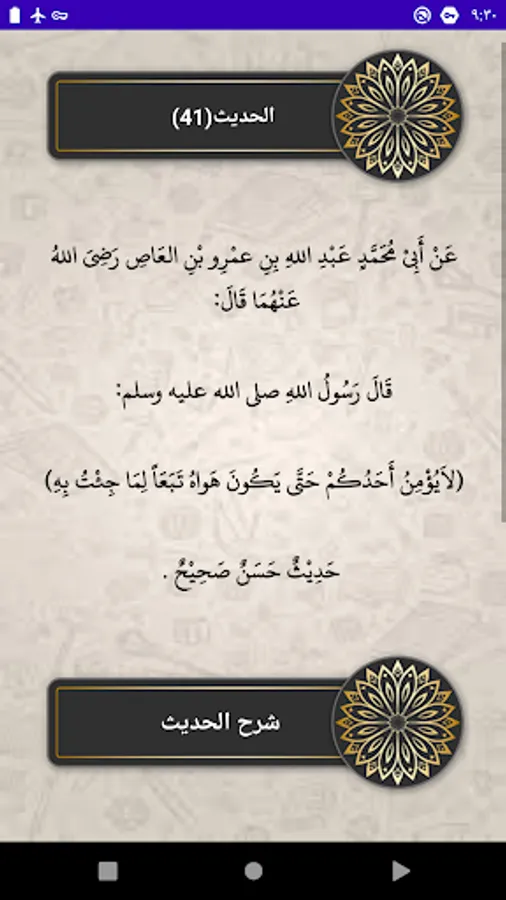 ٩:٣٠
الحديث(41)
عَنْ أَبِيْ مُحَمَّدٍ عَبْدِ اللهِ بِنِ عمْرِو بْنِ العَاصِ رَضِيَ اللهُ
عَنْهُمَا قَالَ:
قَالَ رَسُولُ اللهِ صلى الله عليه وسلم:
(لاَيُؤْمِنُ أَحَدُكُمْ حَتَّى يَكُونَ هَواهُ تَبَعَاً لِمَا جِئْتُ بِهِ)
حَدِيْثٌ حَسَنٌ صَحِيْحٌ .
شرح الحديث